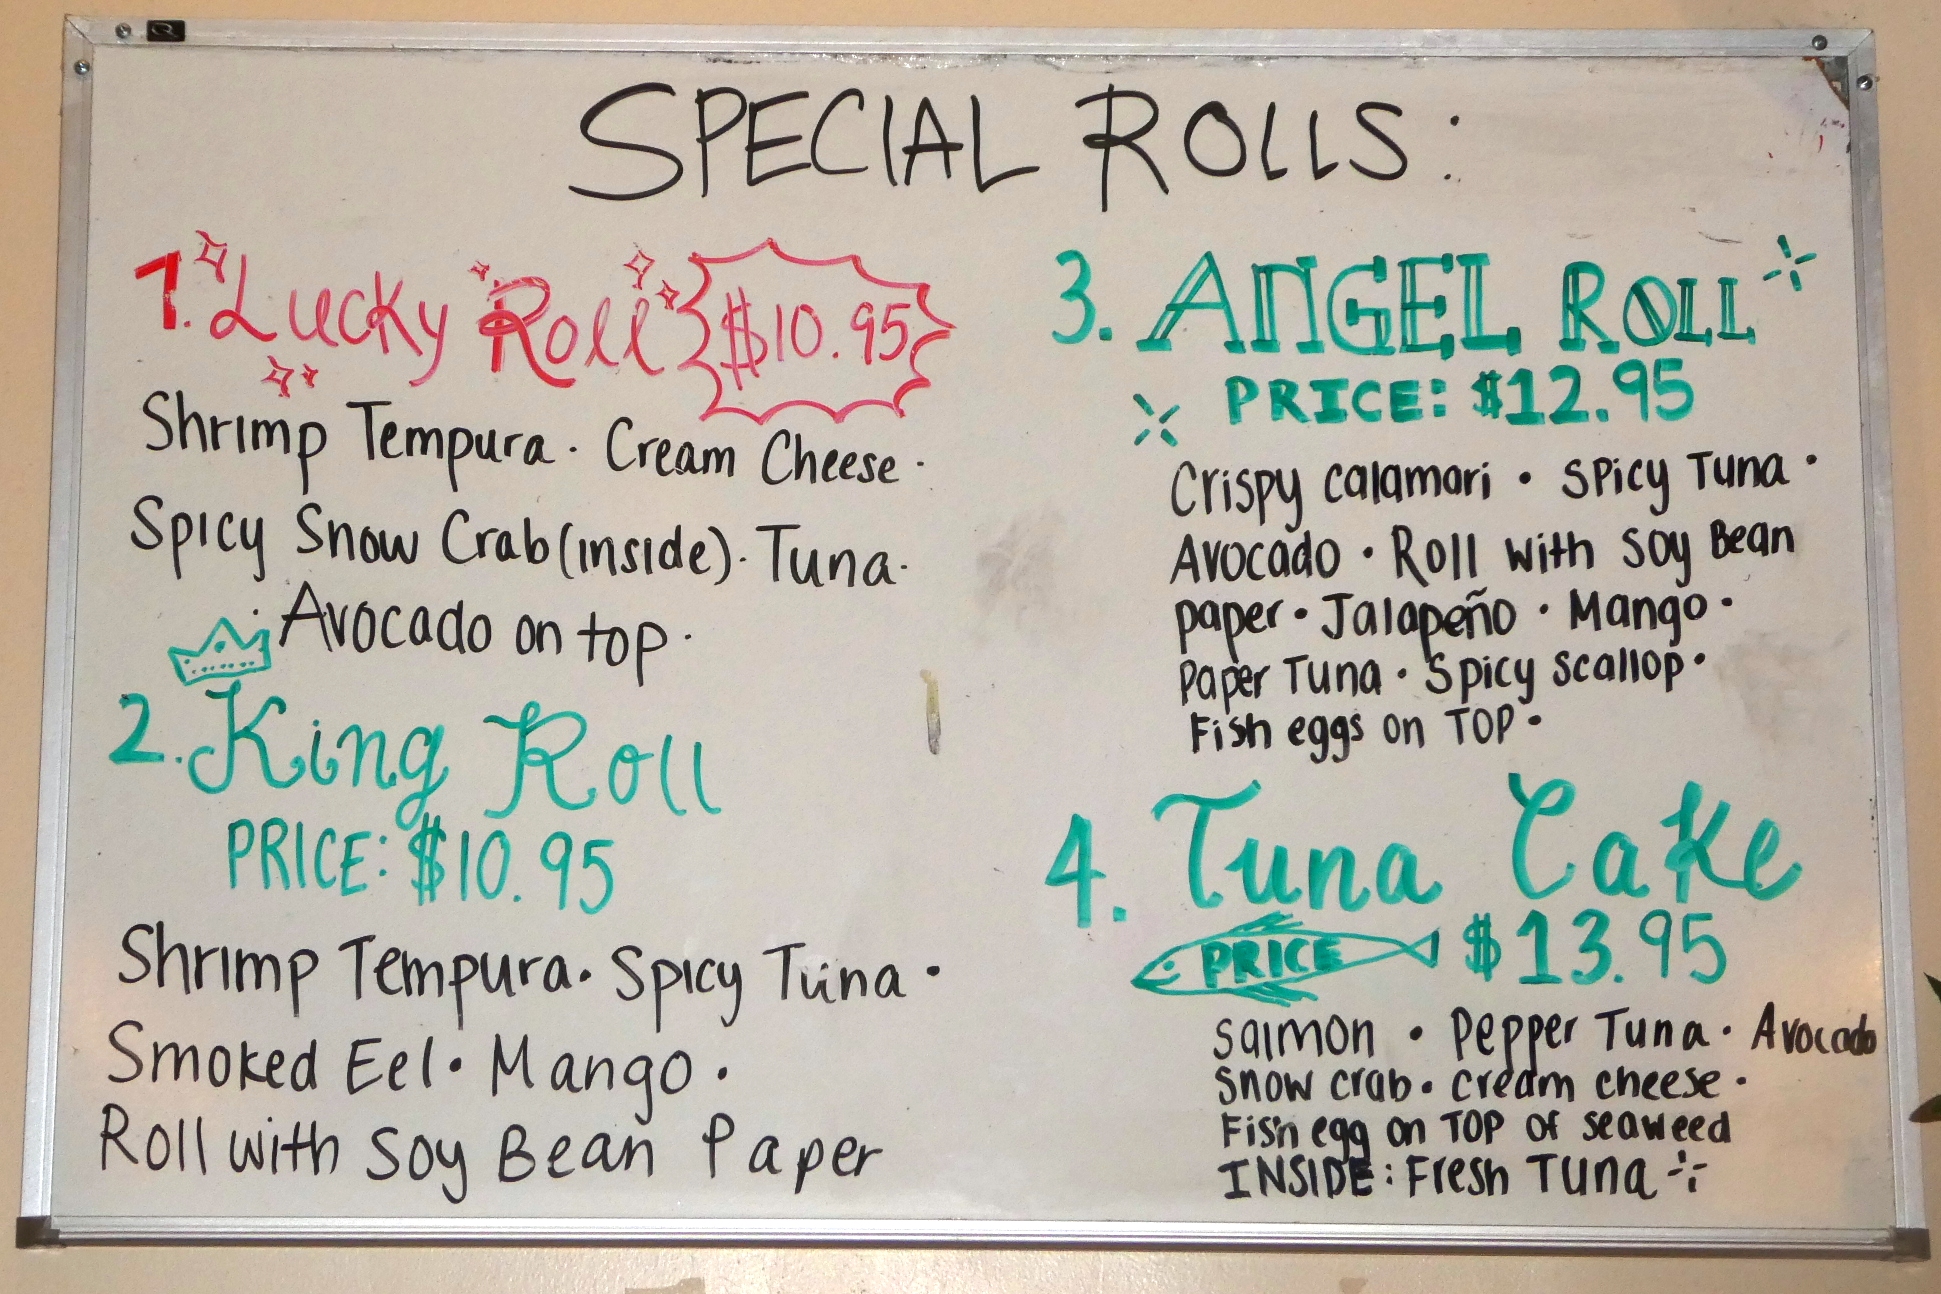 SPECIAL ROLLS:
1. Lucky Roll $10.95
Shrimp Tempura · Cream Cheese ·
Spicy Snow Crab (inside) · Tuna ·
Avocado on top ·
2. King Roll
PRICE: $10.95
Shrimp Tempura · Spicy Tuna ·
Smoked Eel · Mango ·
Roll with Soy Bean Paper
3. ANGEL ROLL
PRICE: $12.95
Crispy calamari · Spicy Tuna ·
Avocado · Roll with Soy Bean
paper · Jalapeño · Mango ·
Paper Tuna · Spicy scallop ·
Fish eggs on TOP ·
4. Tuna Cake
PRICE $13.95
Salmon · Pepper Tuna · Avocado
Snow crab · cream cheese ·
Fish egg on TOP of seaweed
INSIDE: Fresh Tuna